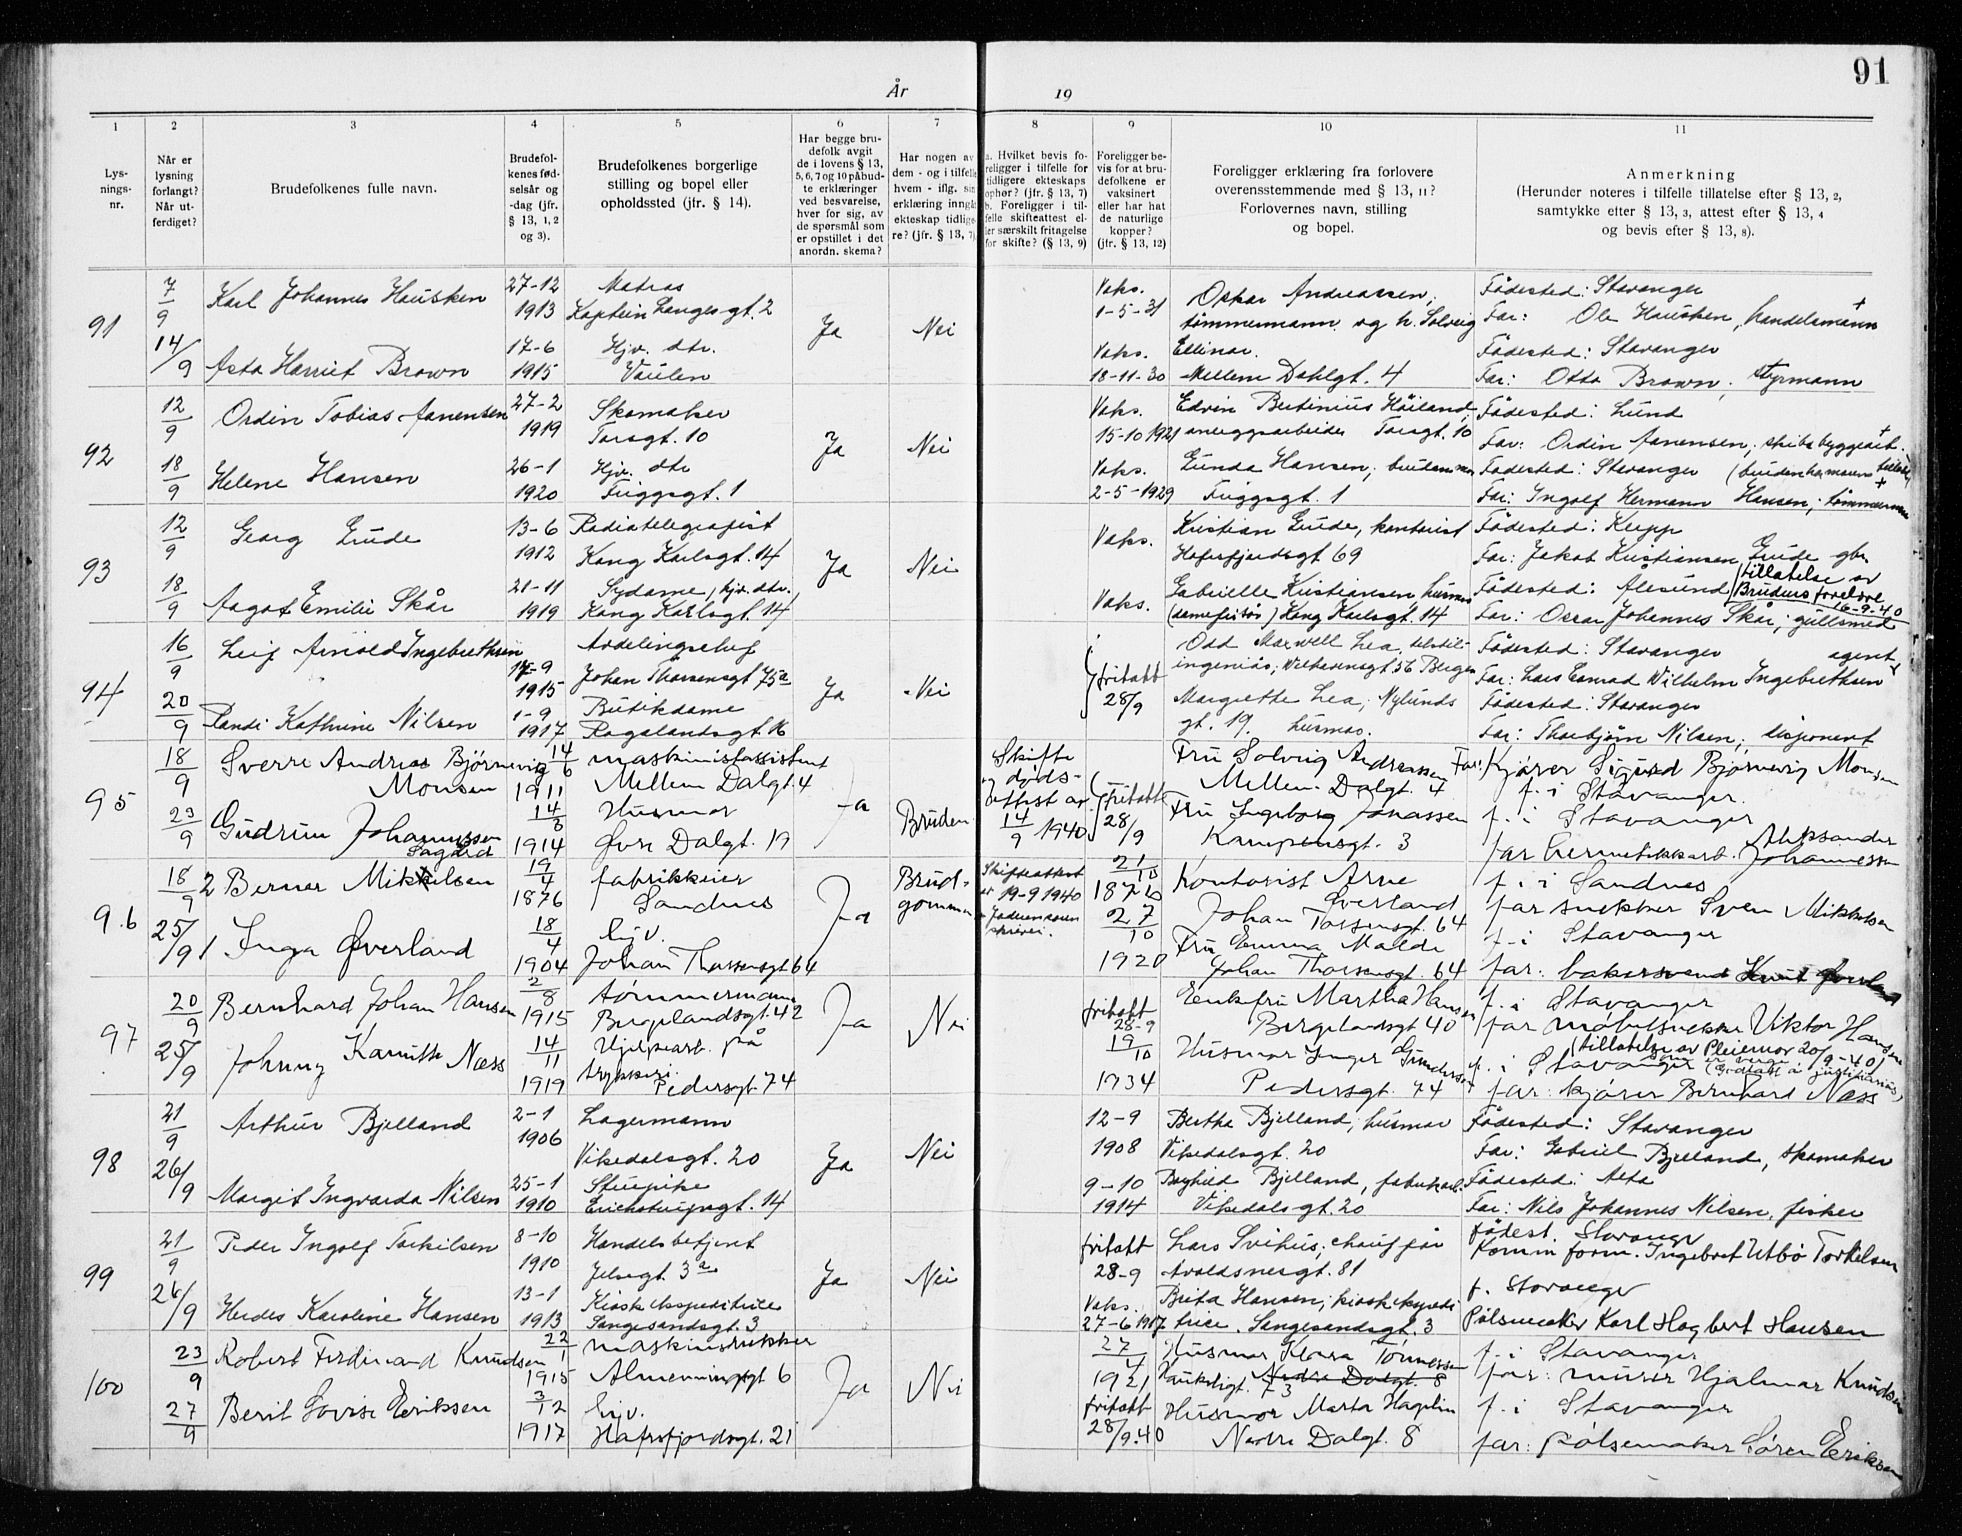 91
År 19
1 2 3 4 5 6 7 8 9 10 11
Lys-
nings-
nr.
Når er
lysning
forlangt?
Når ut-
ferdiget?
Brudefolkenes fulle navn.
Brudefol-
kenes fød-
selsår og
-dag (jfr.
§ 13, 1, 2
og 3).
Brudefolkenes borgerlige
stilling og bopel eller
opholdssted (jfr. § 14).
Har begge bru-
defolk avgit
de i lovens § 13,
5, 6, 7 og 10 påbud-
te erklæringer
ved besvarelse,
hver for sig, av
de spørsmål som
er opstillet i det
anordn. skema?
Har nogen av
dem - og i tilfelle
hvem - iflg. sin
erklæring inngå
ekteskap tidlige-
re? (jfr. § 13, 7)
a. Hvilket bevis fo-
religger i tilfelle for
tidligere ekteskaps
ophør? (jfr. § 13, 7)
b. Foreligger i til-
felle skifteattest el-
ler særskilt fritagelse
for skifte? (§ 13, 9)
Foreligger be-
vis for at bru-
defolkene er
vaksinert
eller har hat
de naturlige
kopper?
(jfr. § 13, 12)
Foreligger erklæring fra forlovere
overensstemmende med § 13, 11?
Forlovernes navn, stilling
og bopel.
Anmerkning
(Herunder noteres i tilfelle tillatelse efter § 13, 2,
samtykke efter § 13, 3, attest efter § 13, 4
og bevis efter § 13, 8).
91
7/9
14/9
Karl Johannes Hausken
27-12
1913
Matros
Kaptein Langesgt. 2
Asta Harriet Brown
17-6
1915
Hjv. dtr.
Vaulen
Ja
Nei
Vaks.
1-5-31
Vaks.
18-11-30
Oskar Andreassen,
tømmermann og h. Solveig
Ellinor.
Mellem Dahlgt. 4
Fødested: Stavanger
Far: Ole Hausken, handelsmann +
Fødested: Stavanger
Far: Otto Brown, styrmann
92
12/9
18/9
Ordin Tobias Aanensen
27-2
1919
Skomaker
Torsgt. 10
Helene Hansen
26-1
1920
Hjv. dtr
Friggsgt. 1
Ja
Nei
Vaks.
15-10 1921
Vaks.
2-5-1929
Edvin Bertinius Høiland,
anleggsarbeider Torsgt. 10
Lunda Hansen; brudens mor
Friggsgt. 1
Fødested: Lund
Far: Ordin Aanensen, skibsbyggearb. +
Fødested: Stavanger
Far: Ingolf Hermann Hansen, tømmermann +
93
12/9
18/9
Georg Grude
13-6
1912
Radiotelegrafist
Kong Karlsgt. 14
Aagot Emilie Skår
21-11
1919
Sydame, hjv. dtr.
Kong Karlsgt. 14
Ja
Nei
Vaks.
Vaks.
Kristian Grude, kontorist
Hafrsfjordsgt 69
Gabrielle Kristiansen husmor
Kong Karlsgt. 14
Fødested: Klepp
Far: Jakob Kristiansen Grude gbr.
Fødested: Ålesund
(tillatelse av
Brudens foreldre
16-9-40
Far: Oscar Johannes Skår, gullsmed
94
16/9
20/9
Leif Arnold Ingebrethsen
14-9
1915
Avdelingschef
Johan Thorsensgt 75a
Randi Kathrine Nilsen
1-9
1917
Butikdame
Rogalandsgt. 16
Ja
Nei
fritatt
28/9
Odd Maxwell Lea, tekstil-
ingeniør; Bergen
Margrethe Lea, Nylunds
gt. 19, husmor.
Fødested: Stavanger
agent +
Far: Lars Conrad Wilhelm Ingebrethsen
Fødested: Stavanger
Far: Thorbjørn Nilsen, disponent
95
18/9
23/9
Sverre Andreas Bjørnevig
Monsen
14/6
1911
maskinistassistent
Mellem Dalgt. 4
Gudrun Johannessen
14/3
1914
Husmor
Øvre Dalgt. 19
Ja
Bruden
Skifte
14/9 1940
Fritatt
28/9
Fru Solveig Andreassen
Mellem Dalgt. 4
Fru Ingeborg Jonassen
Kampensgt. 3
Far: Kjører Sigurd Bjørnevig Monsen
f. i Stavanger.
f. i Stavanger
far hermetikkarb. Aleksander
Johannessen
96
18/9
25/9
2 Berner Mikkelsen
19/4
1876
fabrikkeier
Sandnes
1 Inga Øverland
18/4
1904
hjv.
Johan Thorsensgt 64
Ja
Brud-
gommen
Skifteattest
av 19-9 1940
skriveri.
21/10
1876
27/10
1920
Kontorist Arne
Øverland
Johan Torsensgt. 64
Fru Emma Malde
Johan Thorsensgt. 64
f. i Sandnes
far snekker Sven Mikkelsen
f. i Stavanger
far: bakersvend Knut Øverland
97
20/9
25/9
Bernhard Johan Hansen
2/8
1915
tømmermann
Bergelandsgt. 42
Johnny Kamitte Næss
14/11
1919
Hjelpearb. på
trykkeri.
Pedersgt. 74
Ja
Nei
fritatt
28-9
19/10
1934
Enkefru Martha Hansen
Bergelandsgt 40
Husmor Inger Gundersen
Pedersgt. 74
f. i Stavanger
far møbelsnekker Viktor Hansen
(tillatelse av Pleiemor 20/9-40)
f. i Stavanger
far: kjører Bernhard Næss
98
21/9
26/9
Arthur Bjelland
2-1
1906
Lagermann
Vikedalsgt. 20
Margit Ingvarda Nilsen
25-1
1910
Stuepike
Erichstrupsgt. 14
Ja
Nei
12-9
1908
9-10
1914
Bertha Bjelland, husmor
Vikedalsgt. 20
Borghild Bjelland, fabrikarb.
Vikedalsgt. 20
Fødested: Stavanger
Far: Gabriel Bjelland, skomaker
Fødested: Alta
Far: Nils Johannes Nilsen, fisker
99
21/9
26/9
Peder Ingolf Torkilsen
8-10
1910
Handelsbetjent
Jelsegt. 3a
Herdes Karoline Hansen
13-1
1913
Kioskekspeditrice
Langesandsgt. 3
Ja
Nei
fritatt
28-9
Vaks.
27-6 1917
Lars Svihus, chauffør
Avaldsnesgt. 81
Berta Hansen, kioskekspedi
trice. Langesandsgt. 3
fødest. Stavanger
Komm form. Ingebret Utbø Torkelsen
f. Stavanger
Pølsemaker Karl Hagbert Hansen
100
23/9
27/9
Robert Ferdinand Knudsen
22/1
1915
maskinsnekker
Almenningsgt 6
Berit Lovise Eriksen
3/12
1917
hjv.
Hafrsfjordsgt. 21
Ja
Nei
27/4
1921
fritatt
28/9-40
Husmor Klara Tønnessen
Haukeligt. 73 Nedre Dalgt. 8
Husmor Marta Haglin
Nedre Dalgt. 8
f. i Stavanger
far: murer Hjalmar Knudsen
f. i Stavanger
far: pølsemaker Søren Eriksen